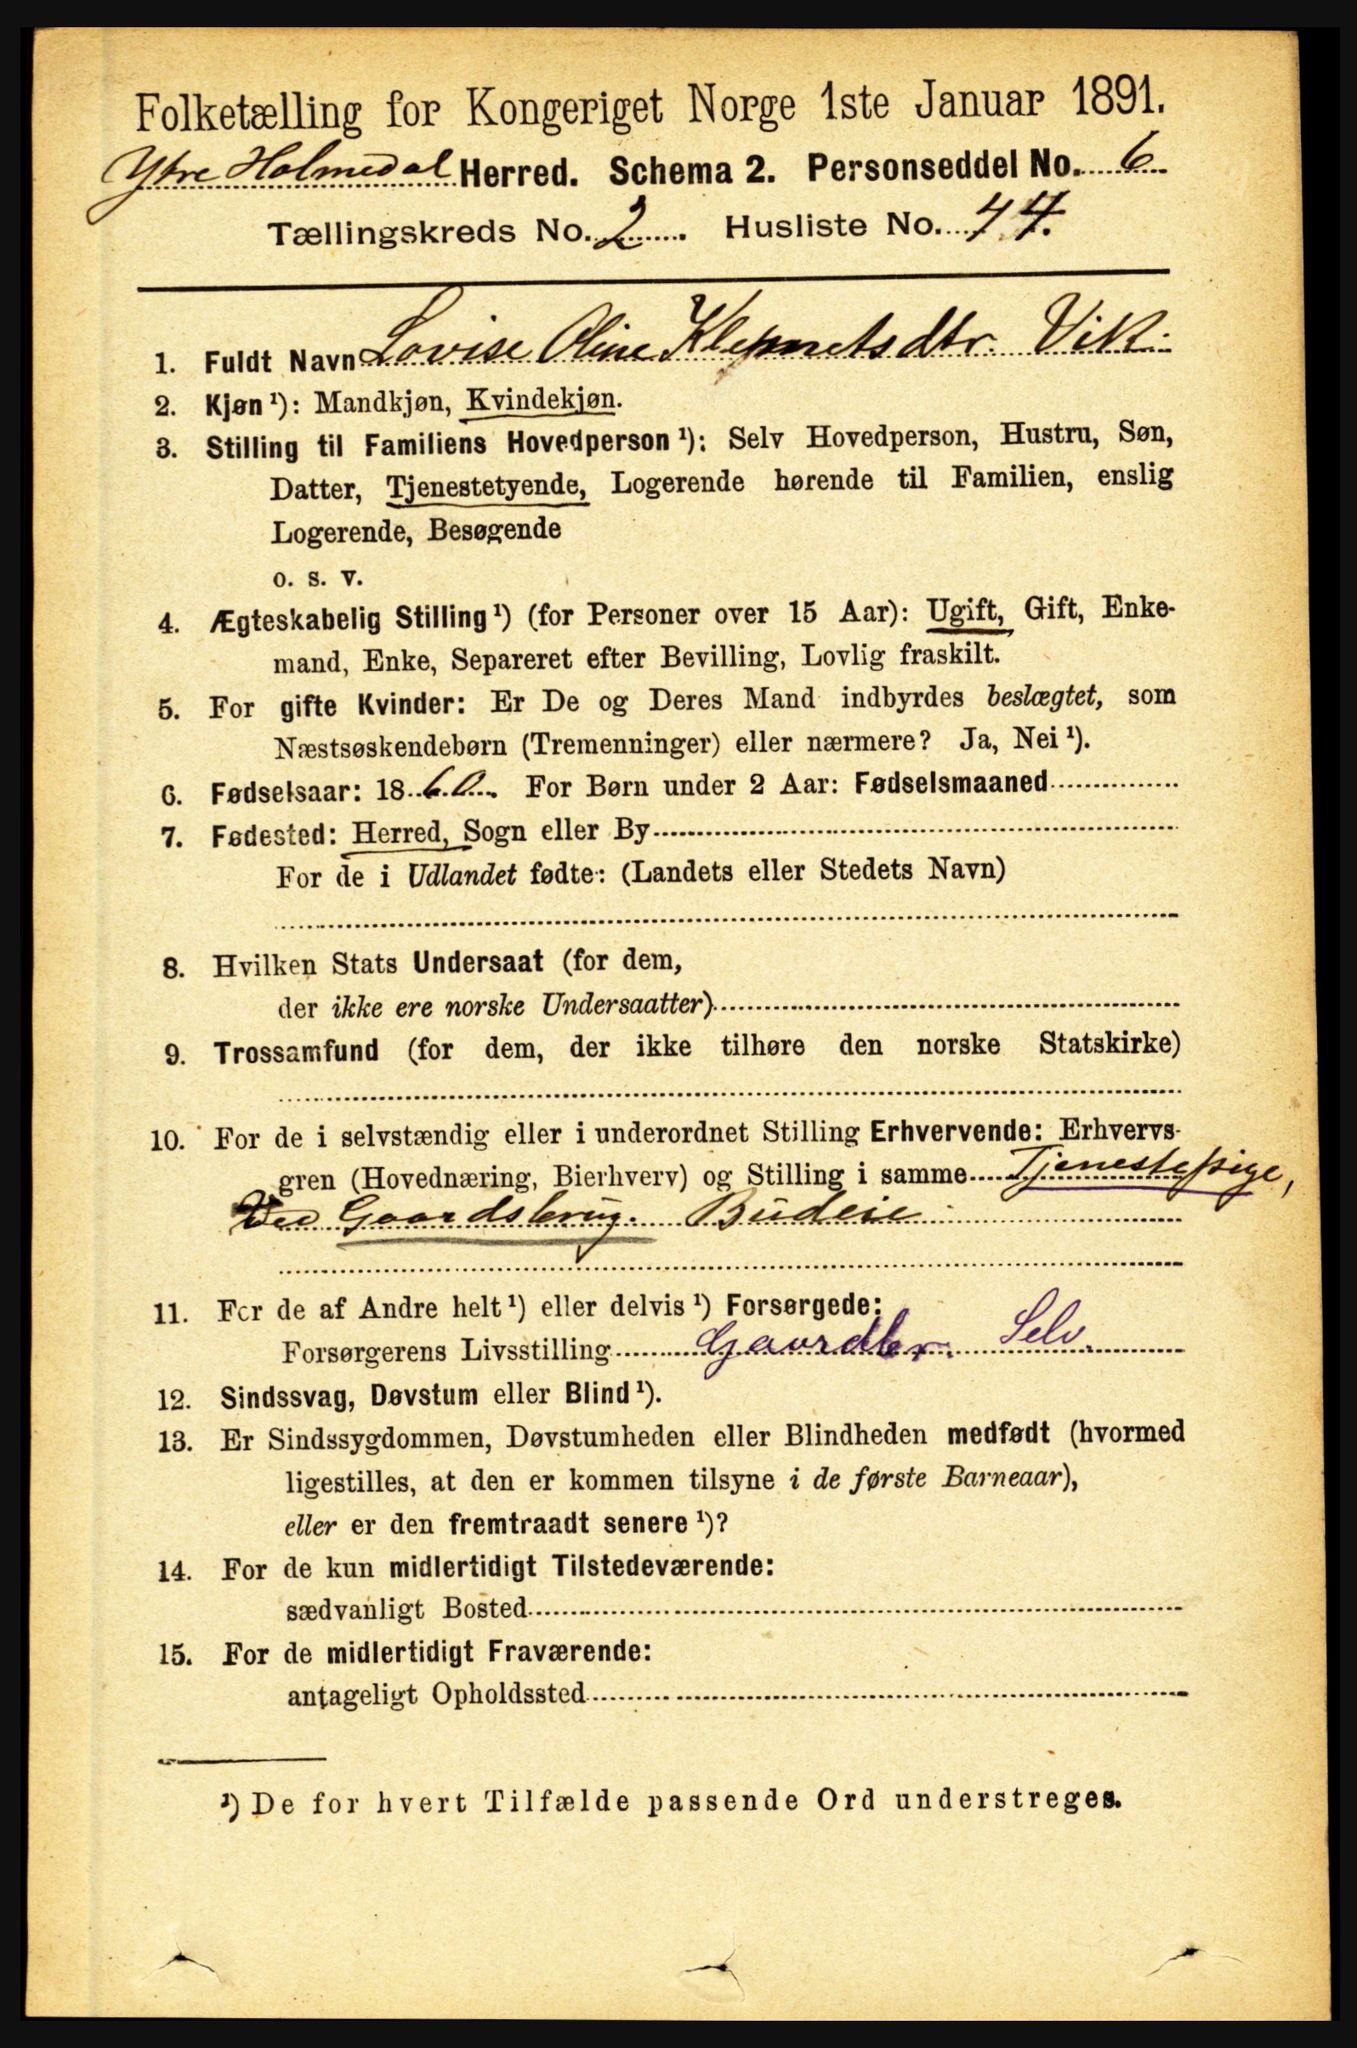 Folketælling for Kongeriget Norge 1ste Januar 1891.
Ytre Holmedal Herred. Schema 2. Personseddel No. 6
Tællingskreds No. 2. Husliste No. 44.
1. Fuldt Navn Lovise Oline Klemetsdtr. Vik.
2. Kjøn ¹): Mandkjøn, Kvindekjøn.
3. Stilling til Familiens Hovedperson ¹): Selv Hovedperson, Hustru, Søn,
Datter, Tjenestetyende, Logerende hørende til Familien, enslig
Logerende, Besøgende
o. s. v.
4. Ægteskabelig Stilling ¹) (for Personer over 15 Aar): Ugift, Gift, Enke-
mand, Enke, Separeret efter Bevilling, Lovlig fraskilt.
5. For gifte Kvinder: Er De og Deres Mand indbyrdes beslægtet, som
Næstsøskendebørn (Tremenninger) eller nærmere? Ja, Nei ¹).
6. Fødselsaar: 1860. For Børn under 2 Aar: Fødselsmaaned
7. Fødested: Herred, Sogn eller By
For de i Udlandet fødte: (Landets eller Stedets Navn)
8. Hvilken Stats Undersaat (for dem,
der ikke ere norske Undersaatter)
9. Trossamfund (for dem, der ikke tilhøre den norske Statskirke)
10. For de i selvstændig eller i underordnet Stilling Erhvervende: Erhvervs-
gren (Hovednæring, Bierhverv) og Stilling i samme Tjenestepige,
Ved Gaardsbrug. Budeie
11. For de af Andre helt ¹) eller delvis ¹) Forsørgede:
Forsørgerens Livsstilling Gaardbr. Selv.
12. Sindssvag, Døvstum eller Blind ¹).
13. Er Sindssygdommen, Døvstumheden eller Blindheden medfødt (hvormed
ligestilles, at den er kommen tilsyne i de første Barneaar),
eller er den fremtraadt senere ¹)?
14. For de kun midlertidigt Tilstedeværende:
sædvanligt Bosted
15. For de midlertidigt Fraværende:
antageligt Opholdssted
¹) De for hvert Tilfælde passende Ord understreges.